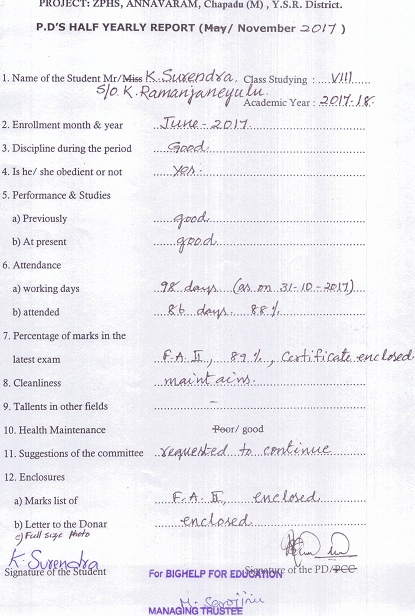 PROJECT: ZPHS, ANNAVARAM, Chapadu (M) , Y.S.R. District.
P.D'S HALF YEARLY REPORT (May/ November 2017 )
1. Name of the Student Mr/Miss K. Surendra. Class Studying : VIII
S/O. K. Ramanjaneyulu.
Academic Year : 2017-18.
2. Enrollment month & year June - 2017.
3. Discipline during the period Good.
4. Is he/ she obedient or not yes.
5. Performance & Studies
a) Previously good
b) At present good
6. Attendance
a) working days 98 days (as on 31-10-2017)
b) attended 86 days. 88%
7. Percentage of marks in the
latest exam F.A. II, 87%, Certificate enclosed
8. Cleanliness maintains.
9. Tallents in other fields –
10. Health Maintenance Poor/ good
11. Suggestions of the committee requested to continue
12. Enclosures
a) Marks list of F.A. II, enclosed
b) Letter to the Donar enclosed
c) Full size photo
K. Surendra
Signature of the Student For BIGHELP FOR EDUCATION Signature of the PD/PCC
MANAGING TRUSTEE